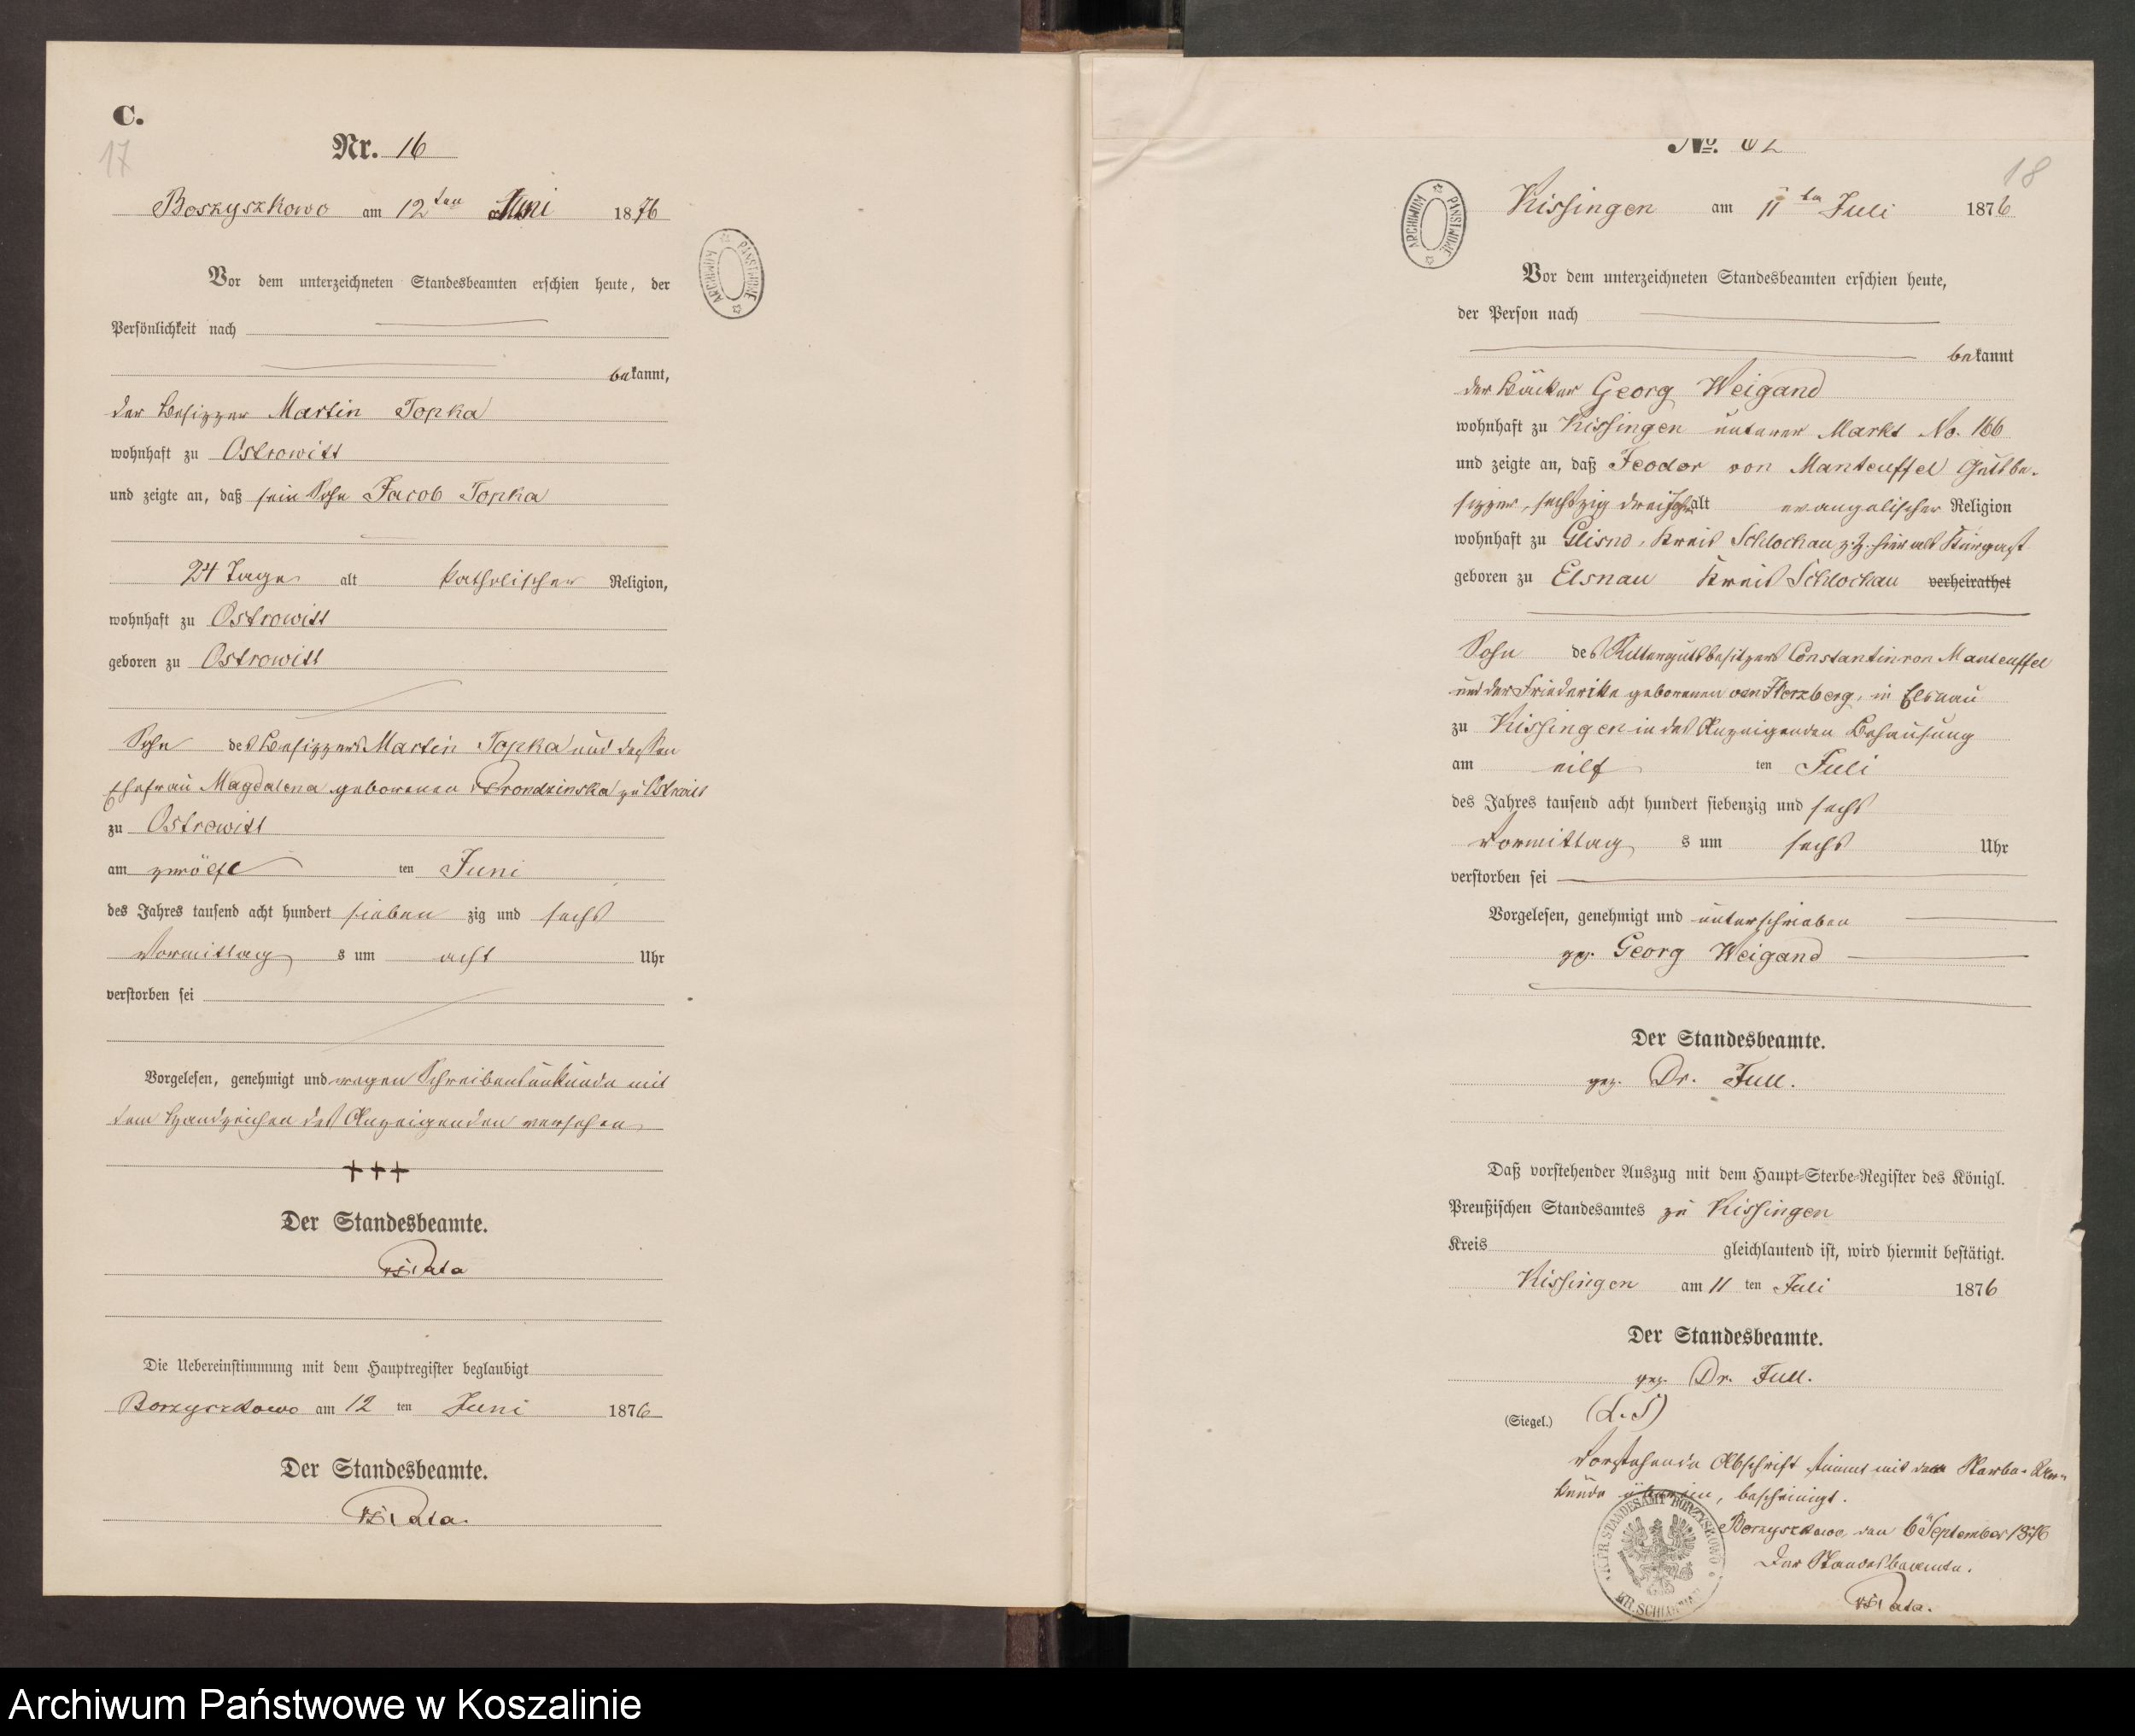 C.
17
Nr. 16
Borzyszkowo am 12ten Juni 1876
Vor dem unterzeichneten Standesbeamten erschien heute, der
Persönlichkeit nach
bekannt,
der Besizzer Martin Topka
wohnhaft zu Ostrowitt
und zeigte an, daß sein Sohn Jacob Topka
24 Tage alt katholischer Religion,
wohnhaft zu Ostrowitt
geboren zu Ostrowitt
Sohn des Besizzers Martin Topka und dessen
Ehefrau Magdalena geborenen Prondzinska zu Ostrowitt
zu Ostrowitt
am zwölf ten Juni
des Jahres tausend acht hundert sieben zig und sechs
Vormittag s um acht Uhr
verstorben sei
Vorgelesen, genehmigt und wegen Schreibensunkunde mit
dem Handzeichen des Anzeigenden versehen
+++
Der Standesbeamte.
Die Uebereinstimmung mit dem Hauptregister beglaubigt
Borzyszkowo am 12 ten Juni 1876
Der Standesbeamte.
ARCHIWUM PAŃSTWOWE
18
No. 62
Kissingen am 11ten Juli 1876
ARCHIWUM PAŃSTWOWE
Vor dem unterzeichneten Standesbeamten erschien heute,
der Person nach
bekannt
der Bäcker Georg Weigand
wohnhaft zu Kissingen unterer Markt No. 166
und zeigte an, daß Feodor von Manteuffel Gutsbe-
sizzer, sechszig drei Jahr alt evangelischer Religion
wohnhaft zu Glisno, Kreis Schlochau z. Z. hier als Kurgast
geboren zu Elsnau Kreis Schlochau verheirathet
Sohn des Rittergutsbesitzers Constantin von Manteuffel
und der Friederike geborenen von Herzberg, in Elsnau
zu Kissingen in des Anzeigenden Behausung
am eilf ten Juli
des Jahres tausend acht hundert siebenzig und sechs
Vormittag s um sechs Uhr
verstorben sei
Vorgelesen, genehmigt und unterschrieben
gez. Georg Weigand
Der Standesbeamte.
gez. Dr. Full.
Daß vorstehender Auszug mit dem Haupt-Sterbe-Register des Königl.
Preußischen Standesamtes zu Kissingen
Kreis gleichlautend ist, wird hiermit bestätigt.
Kissingen am 11 ten Juli 1876
Der Standesbeamte.
gez. Dr. Full.
(Siegel.) (L. S)
Vorstehende Abschrift stimmt mit der Sterbe-Ur-
kunde überein, bescheinigt.
Borzyszkowo den 6 September 1876
Der Standesbeamte.
K. PR. STANDESAMT BORZYSZKOWO
KR. SCHLOCHAU
Archiwum Państwowe w Koszalinie